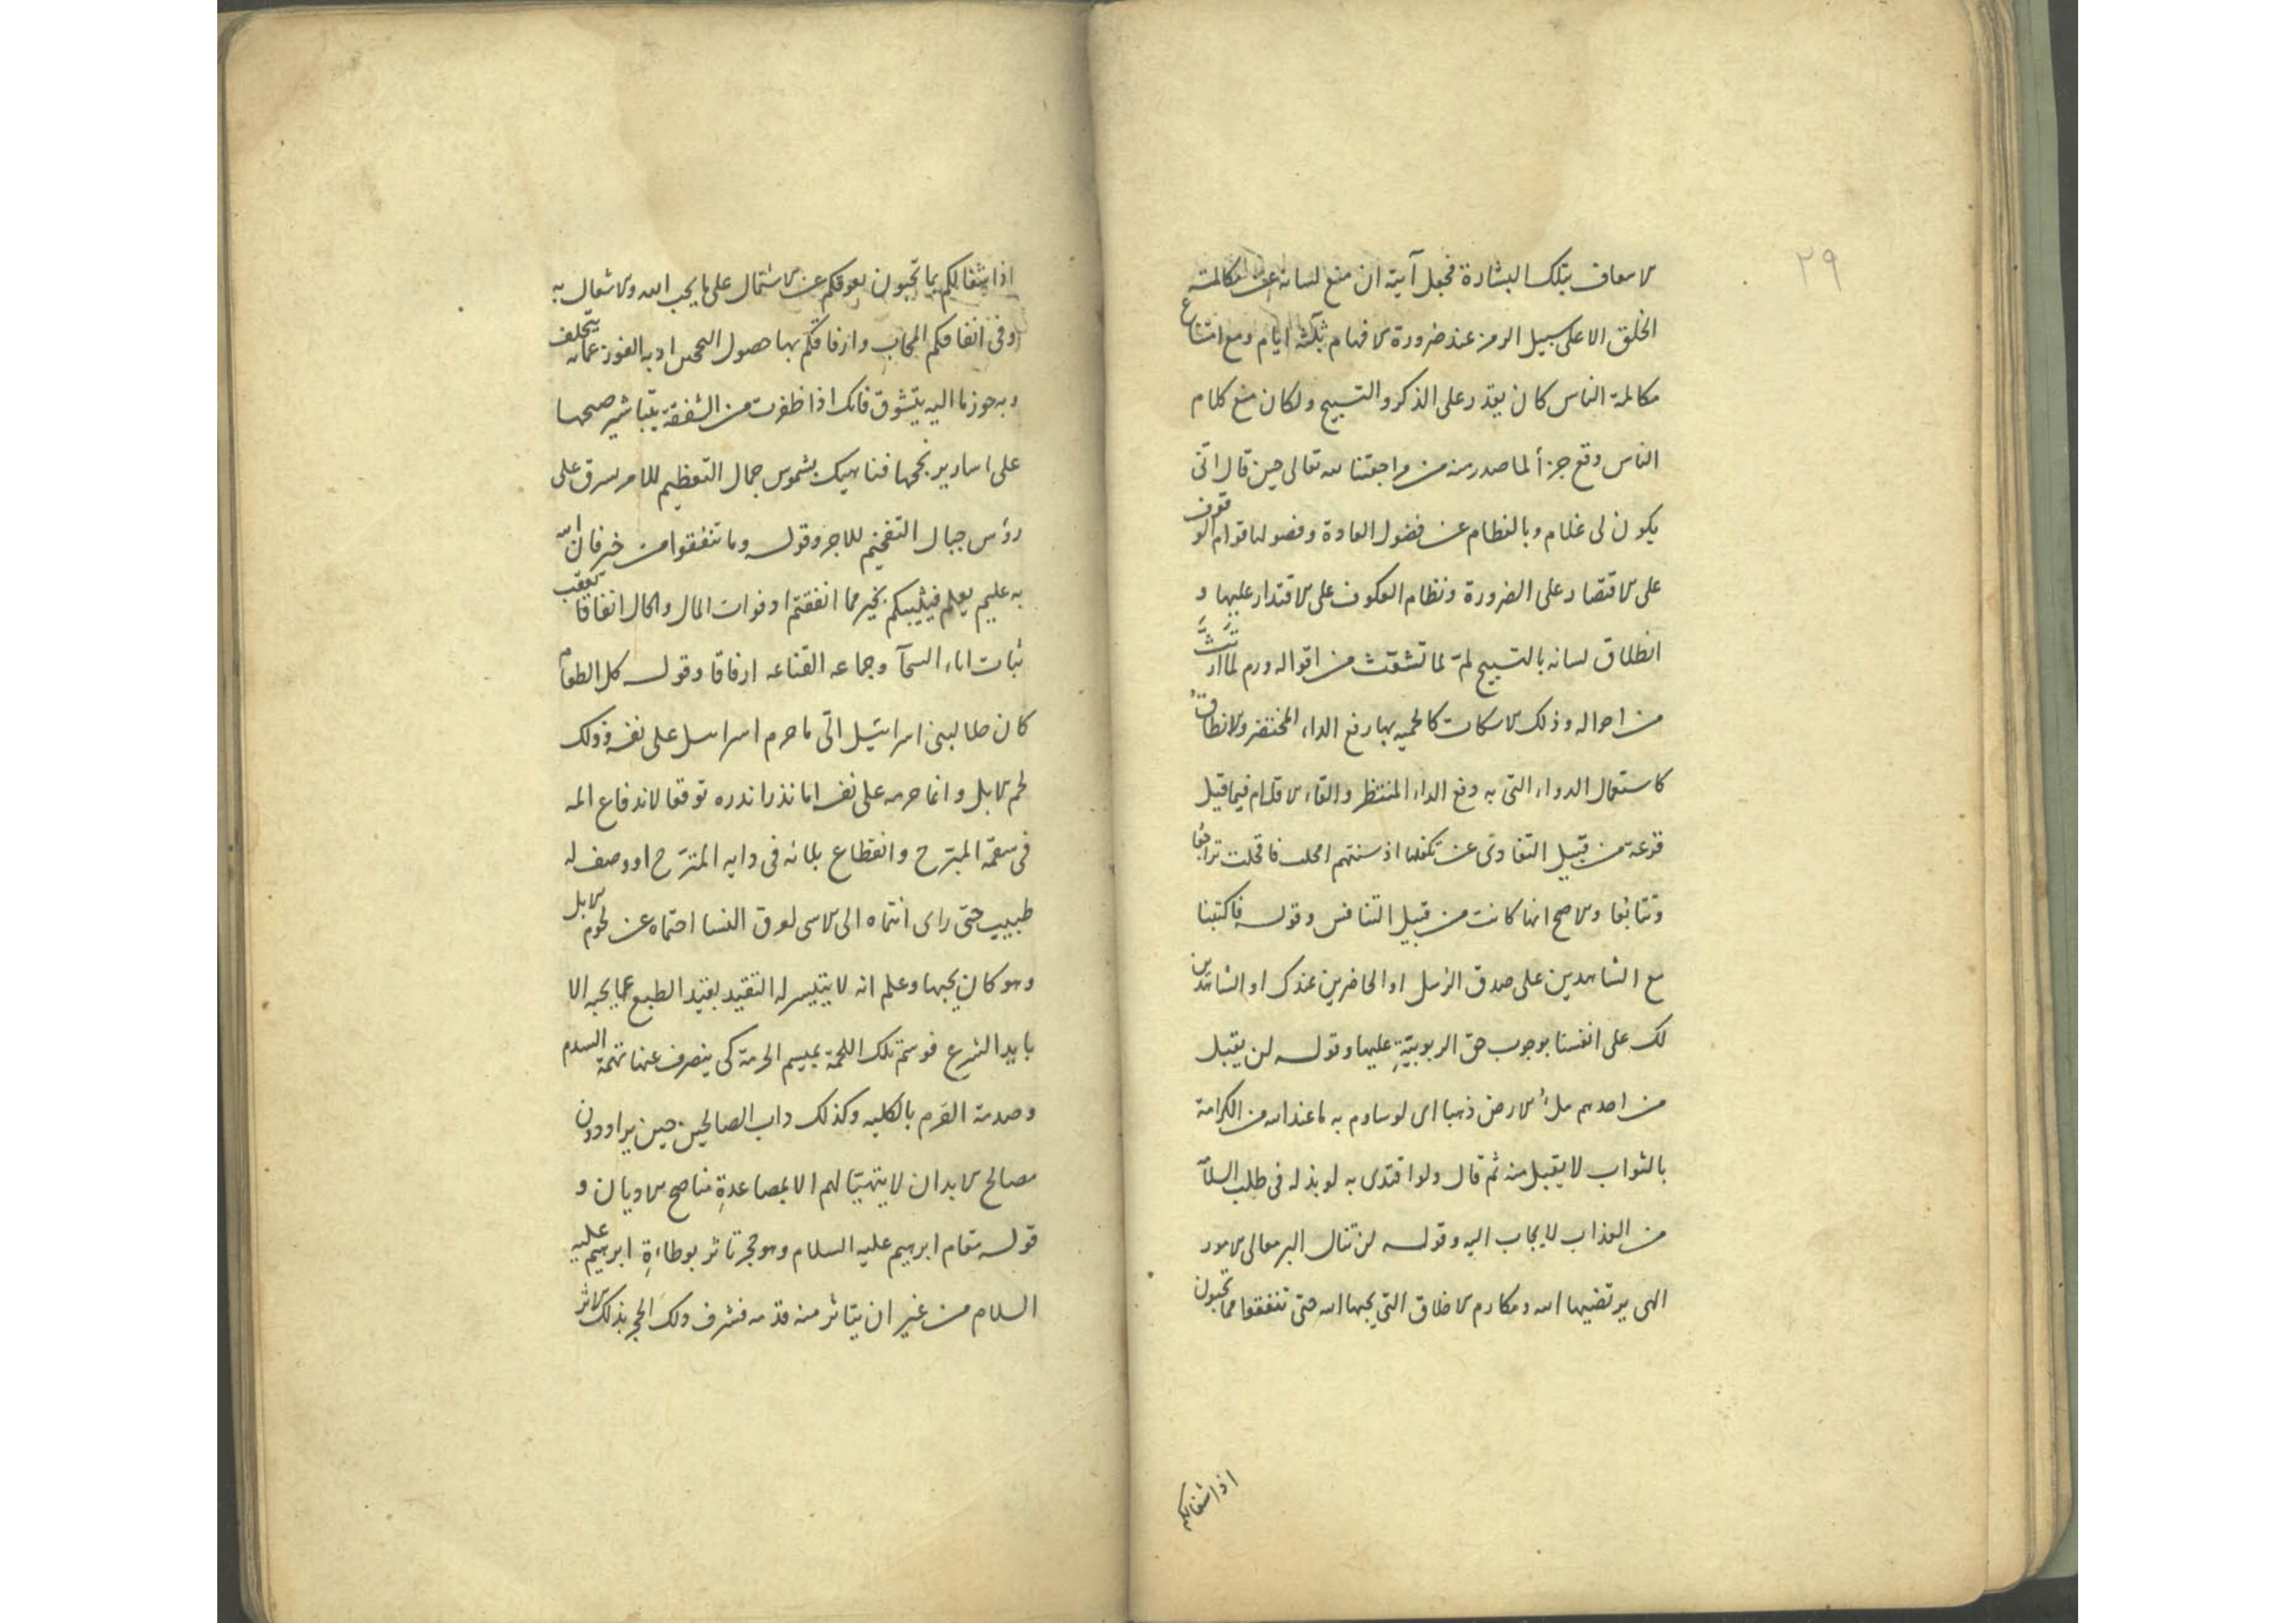 ٢٩
الاسعاف بتلك البشارة فجعل آيته ان منع لسانه عن مكالمة
الخلق الا على سبيل الرمز عند ضرورة الافهام ثلثة ايام ومع امتناع
مكالمة الناس كان يقدر على الذكر والتسبيح ولكان منع كلام
الناس وقع جزأ لما صدر منه من مراجعتنا لله تعالى حين قال انّى
يكون لى غلام وبالفطام عن فضول العادة وفضولها قوام الوقوف
على الاقتصار على الضرورة ونظام العكوف على الاقتدار عليها و
انطلاق لسانه بالتسبيح لمّ لما تشعّث من اقواله ورم لما ارتثّ
من احواله وذلك الاسكات كالحميه بها رفع الداء المختضر والانطاق
كاستعمال الدواء التى به دفع الداء المنتظر والقاء الاقلام فيما قيل
قرعة من قبيل التفادى عن تكفلها اذ سنتهم امحلت فاقحلت ترادفا
وتتابعا والاصح انها كانت من قبيل التنافس وقوله فاكتبنا
مع الشاهدين على صدق الرسل او الحاضرين عندك او الشاهدين
لك على انفسنا بوجوب حق الربوبيّةِ عليها وقوله لن يقبل
من احدهم ملأ الارض ذهبا اى لو ساوم به ما عند الله من الكرامة
بالثواب لا يقبل منه ثم قال ولو افتدى به لو بذله فى طلب السلامة
من العذاب لا يجاب اليه وقوله لن تنال البر معالى الامور
الهى يرتضيها الله ومكارم الاخلاق التى يحبها الله حتى تنفقوا مما تحبون
اذ اشغالكم
اذ اشغالكم بما تحبون يعوقكم عن الاشتمال على ما يحب الله والاشغال به
وفى انفاقكم المحاب وارفاقكم بها حصول الفوز عما يتخلف
وبه حوز ما اليه يتشوق فانك اذا ظفرت من الشفقة بتباشير صبحها
على اسارير نجحها فناهيك بشموس جمال التعظيم للامر على
رؤس جبال التفخيم للاجر وقوله وما تنفقوا من خير فان الله
به عليم يعلم فيثيبكم بخير مما انفقتم او فوات المال والحال انفاقا يعقب
السمآ وجماعه القناعه ارفاقا وقوله كل الطعام
كان حلا لبنى اسرائيل الّى ما حرم اسرائيل على نفسه وذلك
لحم الابل وانما حرمه على نفسه اما نذرا نذره توقعا لاندفاع المه
فى سقمه المبرّح وانقطاع بلائه فى دايه المترّح او وصف له
طبيب حتى راى انتماه الى الاسى لعرق النسا احتماه عن لحوم الابل
وهو كان يحبها وعلم انه لا يتيسر له التقيد بقيد الطبع عما يحبه الا
بايد الشرع فوسم تلك اللحمة بميسم الحرمة كى ينصرف عنها نهمة السدم
وصدمة القرم بالكليه وكذلك داب الصالحين حين يراودون
مصالح الابدان لا يتهيّا لهم الا بمصاعدةِ مناصح الاديان و
قوله مقام ابرهيم عليه السلام وهو حجر تاثر بوطاءةِ ابرهيم عليه
السلام من غير ان يتاثر منه قدمه فشرف ذلك الحجر بذلك الاثر